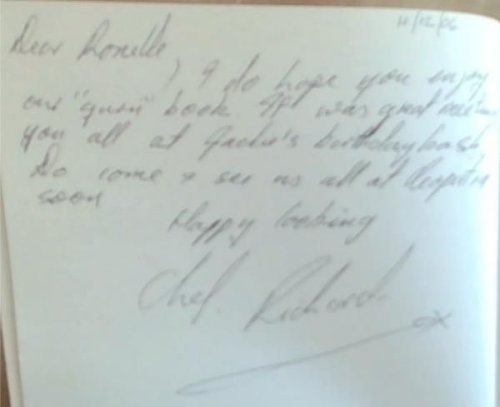 11/12/06
Dear Ronelle
I do hope you enjoy
our "guru" book. It was great
you all at Jackie's birthday bash
Do come & see us all at Cleopatra
soon
Happy Cooking
Chef. Richard. x